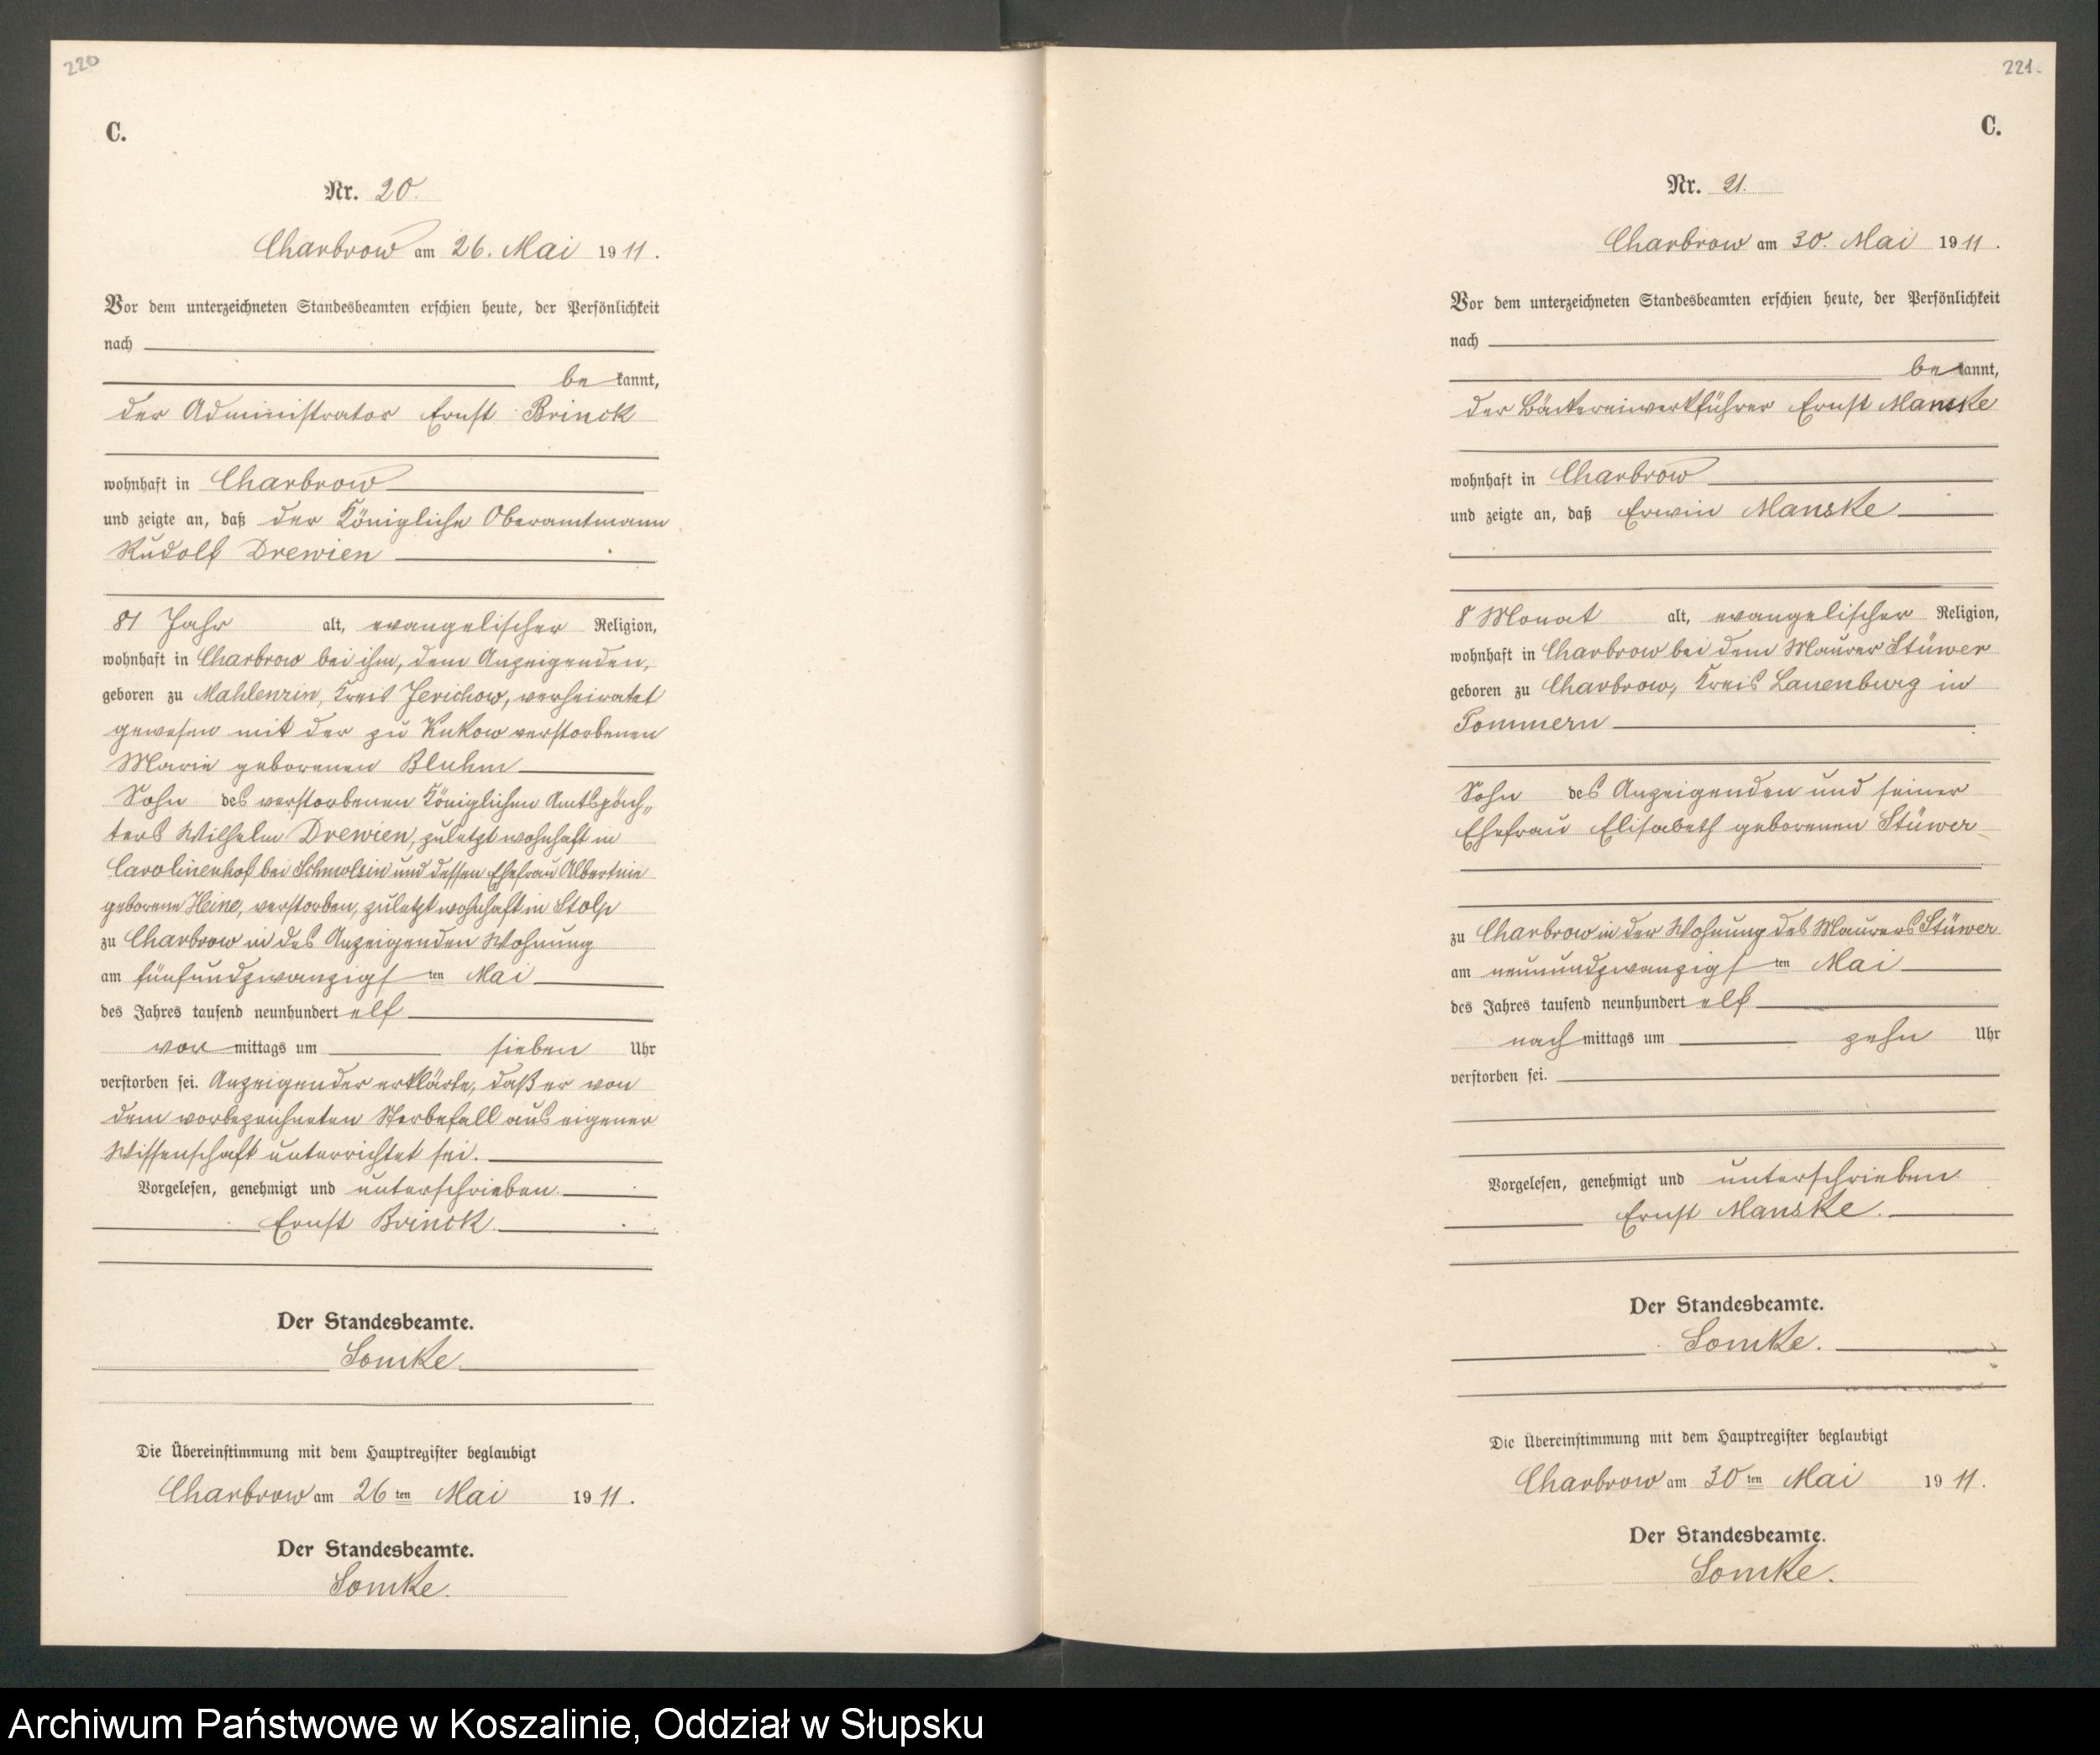 220
C.
Nr. 20.
Charbrow am 26. Mai 1911.
Vor dem unterzeichneten Standesbeamten erschien heute, der Persönlichkeit
nach
be kannt,
der Administrator Ernst Brinck
wohnhaft in Charbrow
und zeigte an, daß der Königliche Oberamtmann
Rudolf Drewien
81 Jahr alt, evangelischer Religion,
wohnhaft in Charbrow bei ihm, dem Anzeigenden,
geboren zu Mahlenzin, Kreis Jerichow, verheiratet
gewesen mit der zu Kukow verstorbenen
Marie geborenen Bluhm
Sohn des verstorbenen Königlichen Amtspäch„
ters Wilhelm Drewien, zuletzt wohnhaft in
Carolinenhof bei Schmolsin und dessen Ehefrau Albertine
geborene Heine, verstorben, zuletzt wohnhaft in Stolp
zu Charbrow in des Anzeigenden Wohnung
am fünfundzwanzigsten Mai
des Jahres tausend neunhundert elf
vor mittags um sieben Uhr
verstorben sei. Anzeigender erklärte, daß er von
dem vorbezeichneten Sterbefall aus eigener
Wissenschaft unterrichtet sei.
Vorgelesen, genehmigt und unterschrieben.
Ernst Brinck.
Der Standesbeamte.
Somke.
Die Übereinstimmung mit dem Hauptregister beglaubigt
Charbrow am 26ten Mai 1911.
Der Standesbeamte.
Somke.
221.
C.
Nr. 21.
Charbrow am 30. Mai 1911.
Vor dem unterzeichneten Standesbeamten erschien heute, der Persönlichkeit
nach
be kannt,
der Bäckereiwerkführer Ernst Manske
wohnhaft in Charbrow
und zeigte an, daß Erwin Manske
8 Monat alt, evangelischer Religion,
wohnhaft in Charbrow bei dem Maurer Stüwer
geboren zu Charbrow, Kreis Lauenburg in
Pommern
Sohn des Anzeigenden und seiner
Ehefrau Elisabeth geborenen Stüwer
zu Charbrow in der Wohnung des Maurers Stüwer
am neunundzwanzigsten Mai
des Jahres tausend neunhundert elf
nach mittags um zehn Uhr
verstorben sei.
Vorgelesen, genehmigt und unterschrieben
Ernst Manske.
Der Standesbeamte.
Somke.
Die Übereinstimmung mit dem Hauptregister beglaubigt
Charbrow am 30ten Mai 1911.
Der Standesbeamte.
Somke.
Archiwum Państwowe w Koszalinie, Oddział w Słupsku